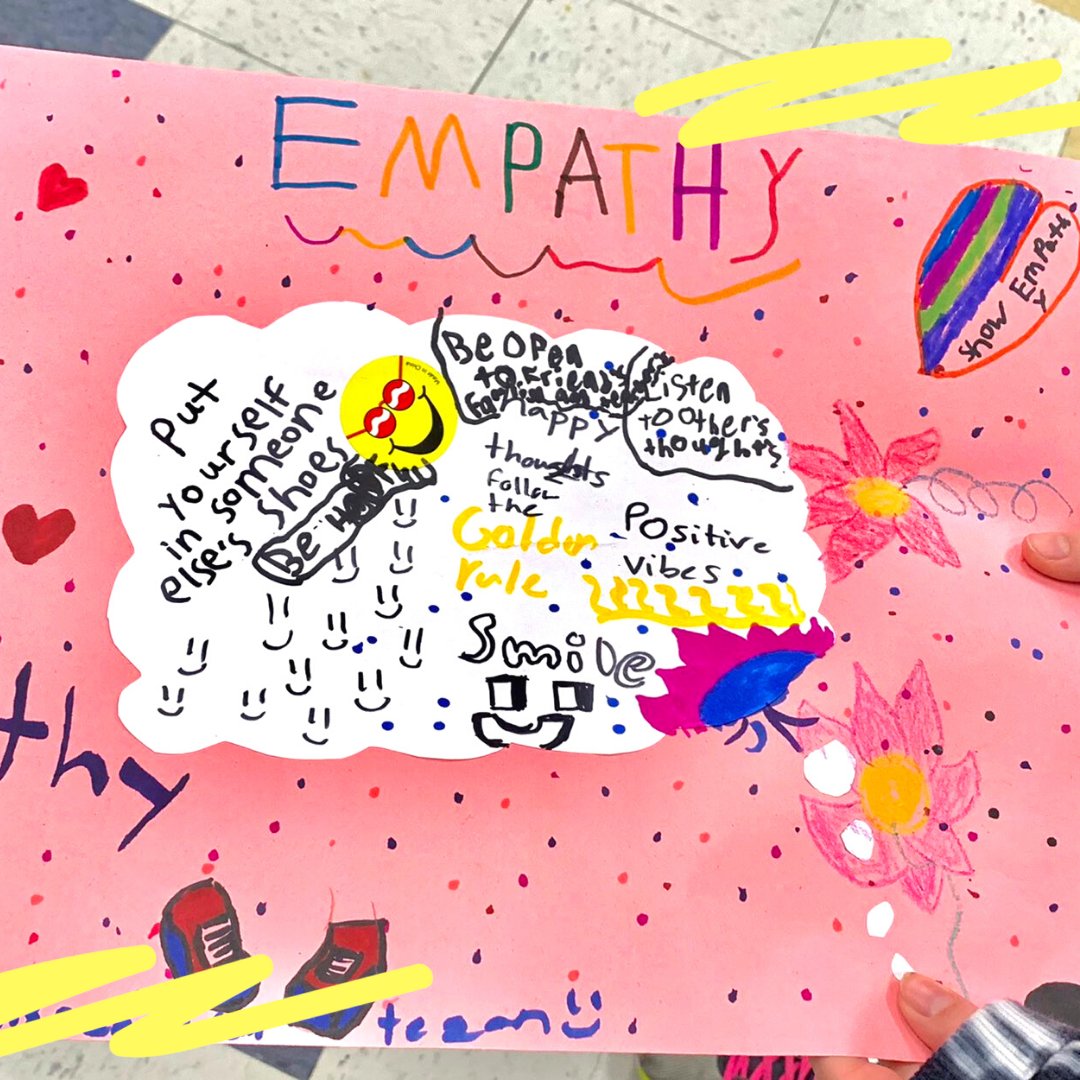 EMPATHY
Show EMPathy
Put
yourself
in someone
else's shoes
Made in China
Be
Be open
to friends
Listen
to other's
thoughts
happy
thoughts
follow
the
Golden
rule
Positive
vibes
Smile
thy
team